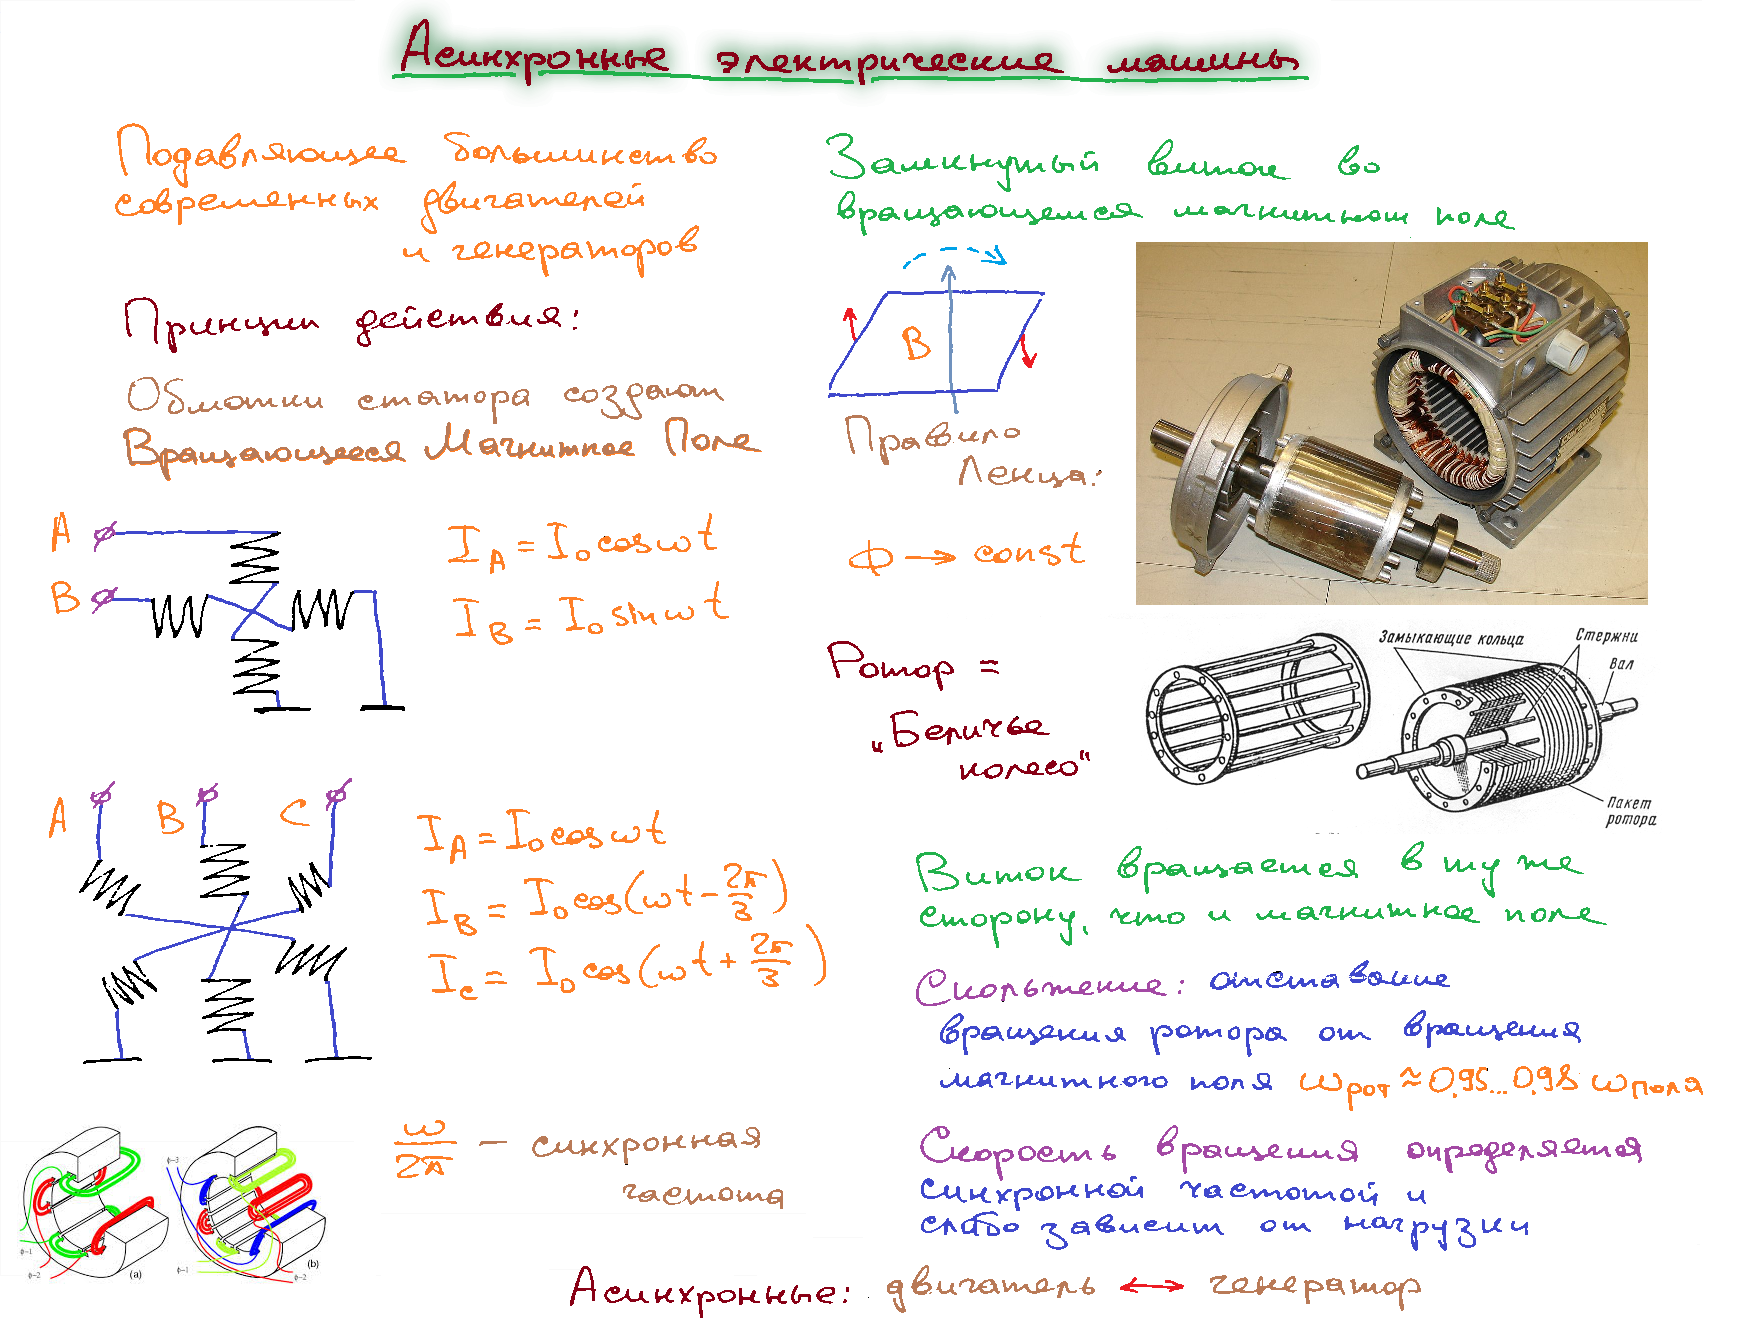 Асинхронные электрические машины
Подавляющее большинство
современных двигателей
и генераторов
Принцип действия:
Обмотки статора создают
Вращающееся Магнитное Поле
A
B
I_A = I_0 cos ωt
I_B = I_0 sin ωt
A B C
I_A = I_0 cos ωt
I_B = I_0 cos(ωt - 2π/3)
I_C = I_0 cos(ωt + 2π/3)
ω/2π — синхронная
частота
ф-1
ф-2
(a)
ф-3
ф-1
ф-2
(b)
Замкнутый виток во
вращающемся магнитном поле
B
Правило
Ленца:
Ф → const
Ротор =
„Беличье
колесо"
Замыкающие кольца
Стержни
Вал
Пакет
ротора
Виток вращается в ту же
сторону, что и магнитное поле
Скольжение: отставание
вращения ротора от вращения
магнитного поля ω_рот ≈ 0,95...0,98 ω_поля
Скорость вращения определяется
синхронной частотой и
слабо зависит от нагрузки
Асинхронные: двигатель ↔ генератор